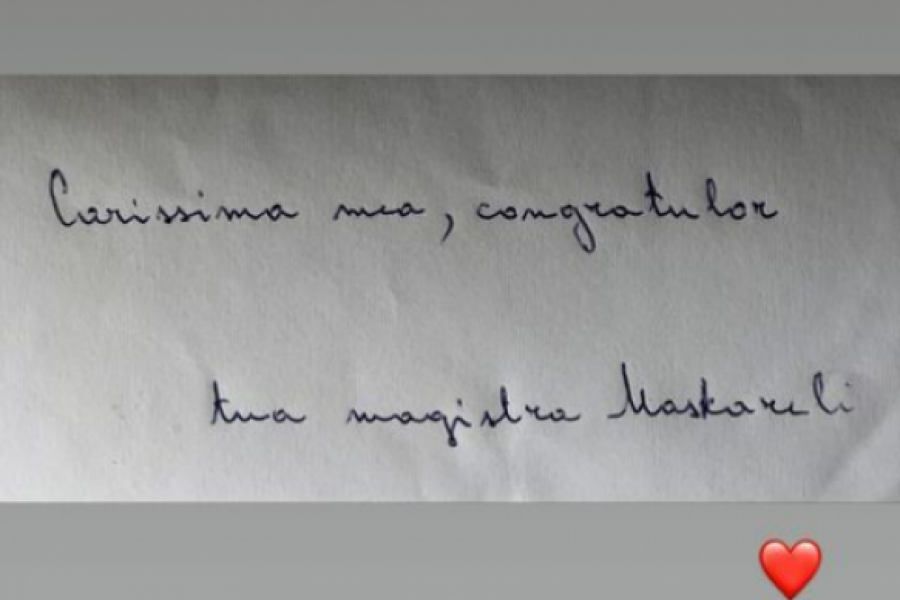 Carissima mea, congratulor
tua magistra Maskareli